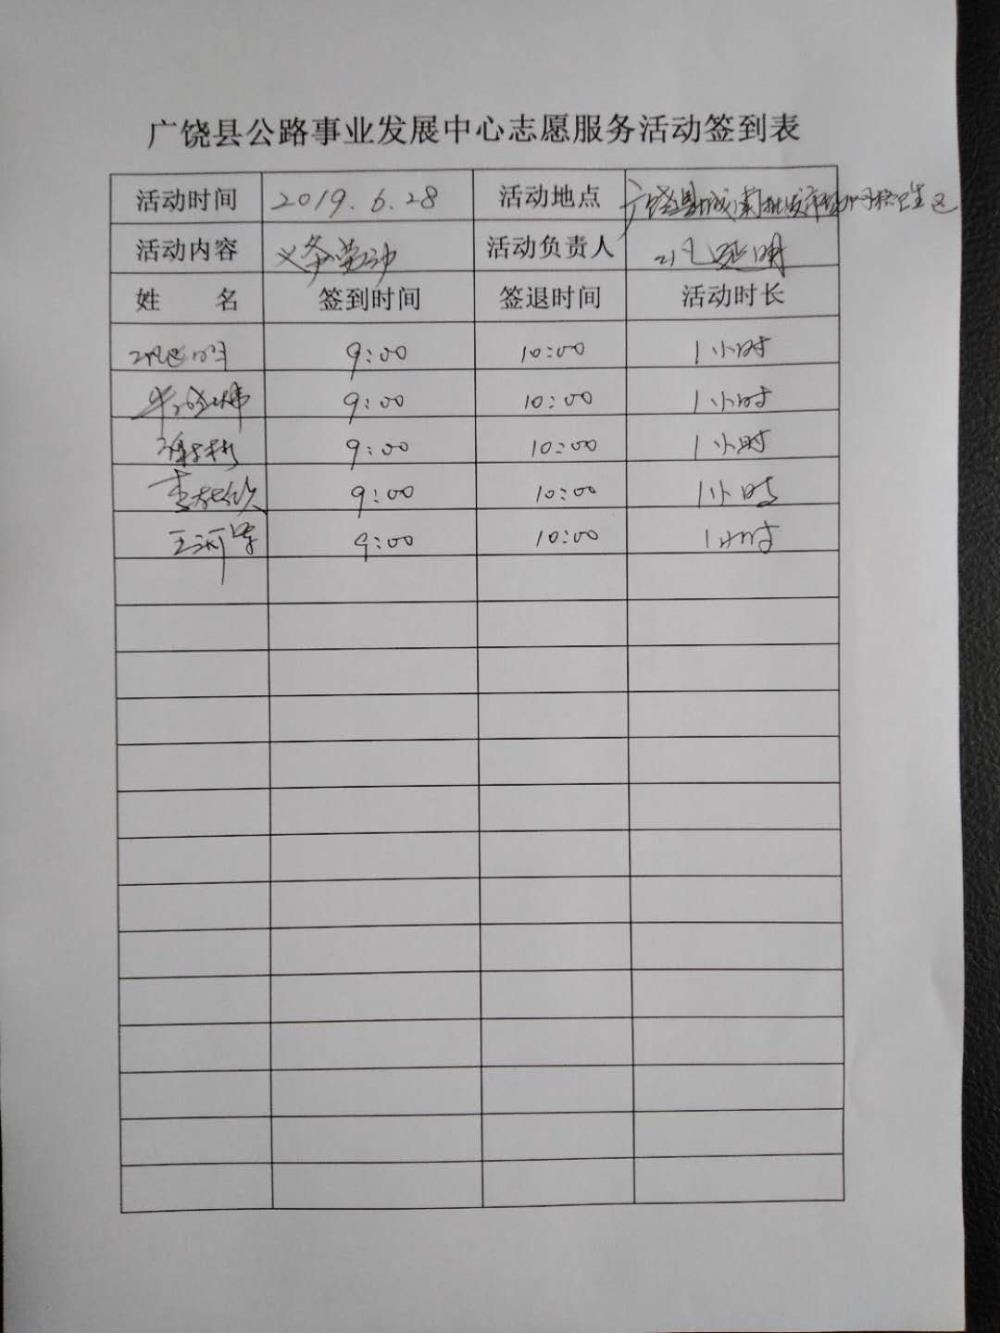 广饶县公路事业发展中心志愿服务活动签到表
活动时间 2019.6.28 活动地点 广饶县城南批发市场
活动内容 义务劳动 活动负责人 延明
姓 名 签到时间 签退时间 活动时长
9:00 10:00 1小时
9:00 10:00 1小时
9:00 10:00 1小时
李 9:00 10:00 1小时
王河 9:00 10:00 1小时